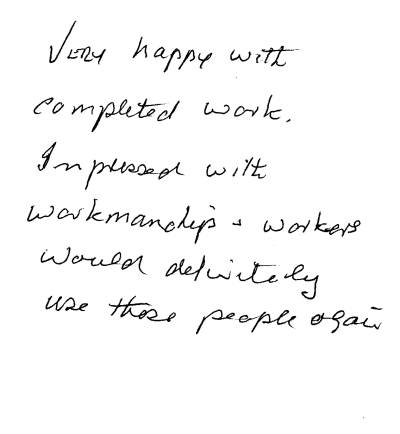 Very happy with
completed work.
Impressed with
workmanship + workers
would definitely
use these people again